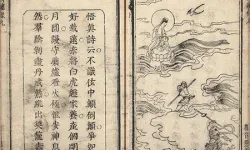 悟真詩云不識中顛倒顛爭
好栽蓮牽將白虎歸家養產個明
月圓謾守藥爐看火候但安神息
然羣陰剝盡丹成熟跳出樊籠壽